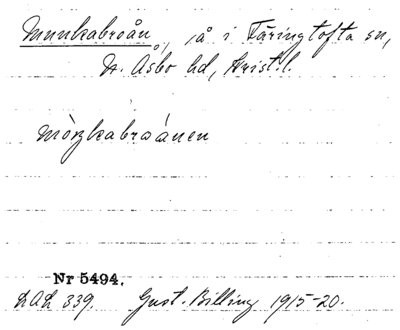 Munkabroån, å i Färingtofta sn,
N. Åsbo hd, Krist. l.
Nr 5494.
LAL 339. Gust. Billing 1915-20.